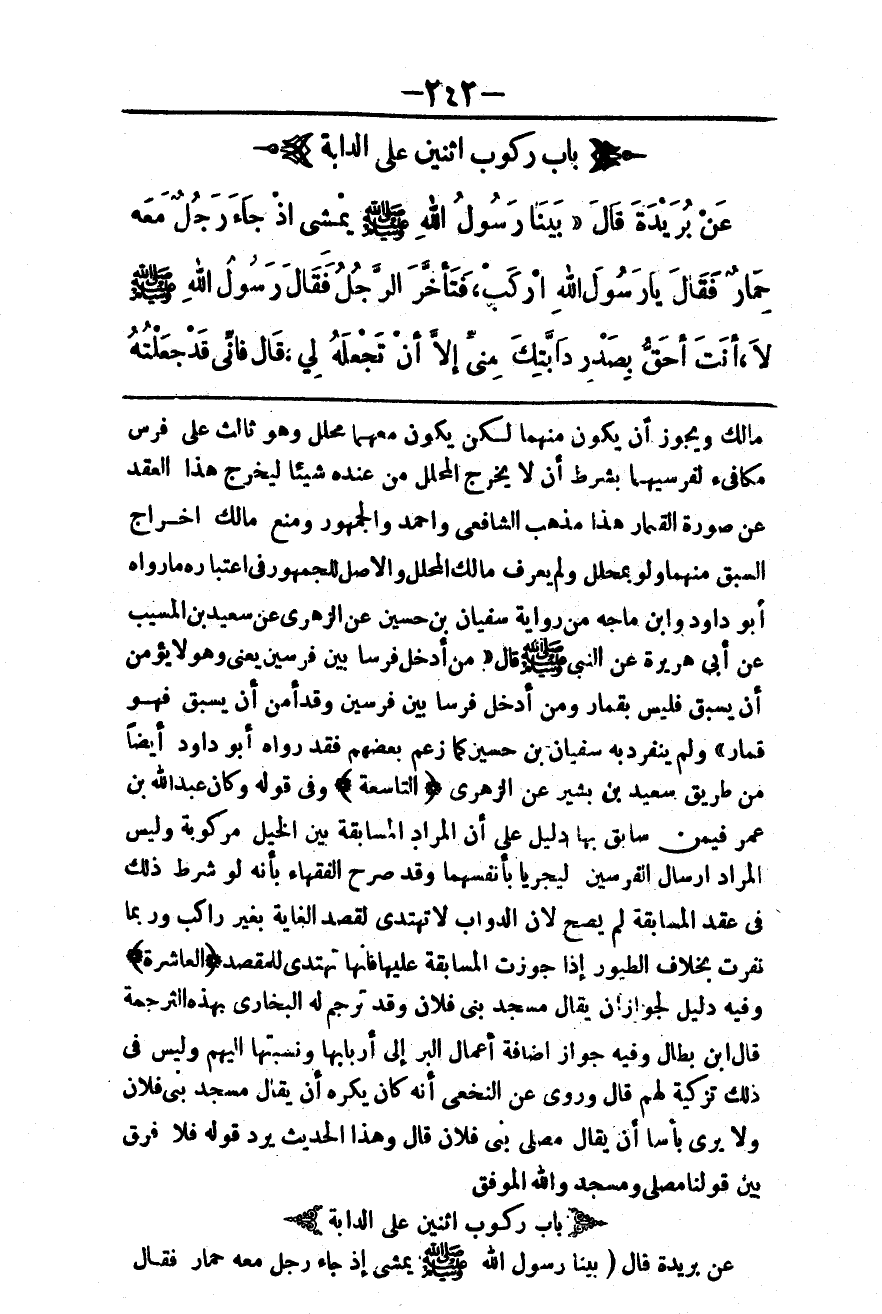 -٢٤٢-
باب ركوب اثنين على الدابة
عَنْ بُرَيْدَةَ قَالَ « بَيْنَا رَسُولُ اللهِ ﷺ يَمْشِى اذْ جَاءَ رَجُلٌ مَعَه
حِمَارٌ فَقَالَ يارَسُولَ اللهِ ارْكَبْ، فَتَأَخَّرَ الرَّجُلُ فَقَالَ رَسُولُ اللهِ ﷺ
لاَ، أنتَ أحَقُّ بِصَدْرِ دَابَّتِكَ مِنىِّ إلاَّ أنْ تَجْعَلَهُ لِي، قَال فانِّى قَدْ جعَلْتُهُ
مالك ويجوز أن يكون منهما لكن يكون معهما محلل وهو ثالث على فرس
مكافىء لفرسيهما بشرط أن لا يخرج المحلل من عنده شيئا ليخرج هذا العقد
عن صورة القمار هذا مذهب الشافعى واحمد والجمهور ومنع مالك اخراج
السبق منهما ولو بمحلل ولم يعرف مالك المحلل والاصل للجمهور فى اعتباره مارواه
أبو داود وابن ماجه من رواية سفيان بن حسين عن الزهرى عن سعيد بن المسيب
عن أبى هريرة عن النبى ﷺ قال « من أدخل فرسا بين فرسين يعنى وهو لا يؤمن
أن يسبق فليس بقمار ومن أدخل فرسا بين فرسين وقد أمن أن يسبق فهو
قمار » ولم ينفرد به سفيان بن حسين كما زعم بعضهم فقد رواه أبو داود أيضاً
من طريق سعيد بن بشير عن الزهرى ﴿ التاسعة ﴾ وفى قوله وكان عبدالله بن
عمر فيمن سابق بها دليل على أن المراد المسابقة بين الخيل مركوبة وليس
المراد ارسال الفرسين ليجريا بأنفسهما وقد صرح الفقهاء بأنه لو شرط ذلك
فى عقد المسابقة لم يصح لان الدواب لاتهتدى لقصد الغاية بغير راكب وربما
نفرت بخلاف الطيور إذا جوزت المسابقة عليها فانها تهتدى للمقصد ﴿العاشرة﴾
وفيه دليل لجواز أن يقال مسجد بنى فلان وقد ترجم له البخارى بهذه الترجمة
قال ابن بطال وفيه جواز اضافة أعمال البر إلى أربابها ونسبتها اليهم وليس فى
ذلك تزكية لهم قال وروى عن النخعى أنه كان يكره أن يقال مسجد بنى فلان
ولا يرى بأسا أن يقال مصلى بنى فلان قال وهذا الحديث يرد قوله فلا فرق
بين قولنا مصلى ومسجد والله الموفق
باب ركوب اثنين على الدابة
عن بريدة قال ( بينا رسول الله ﷺ يمشى إذ جاء رجل معه حمار فقال